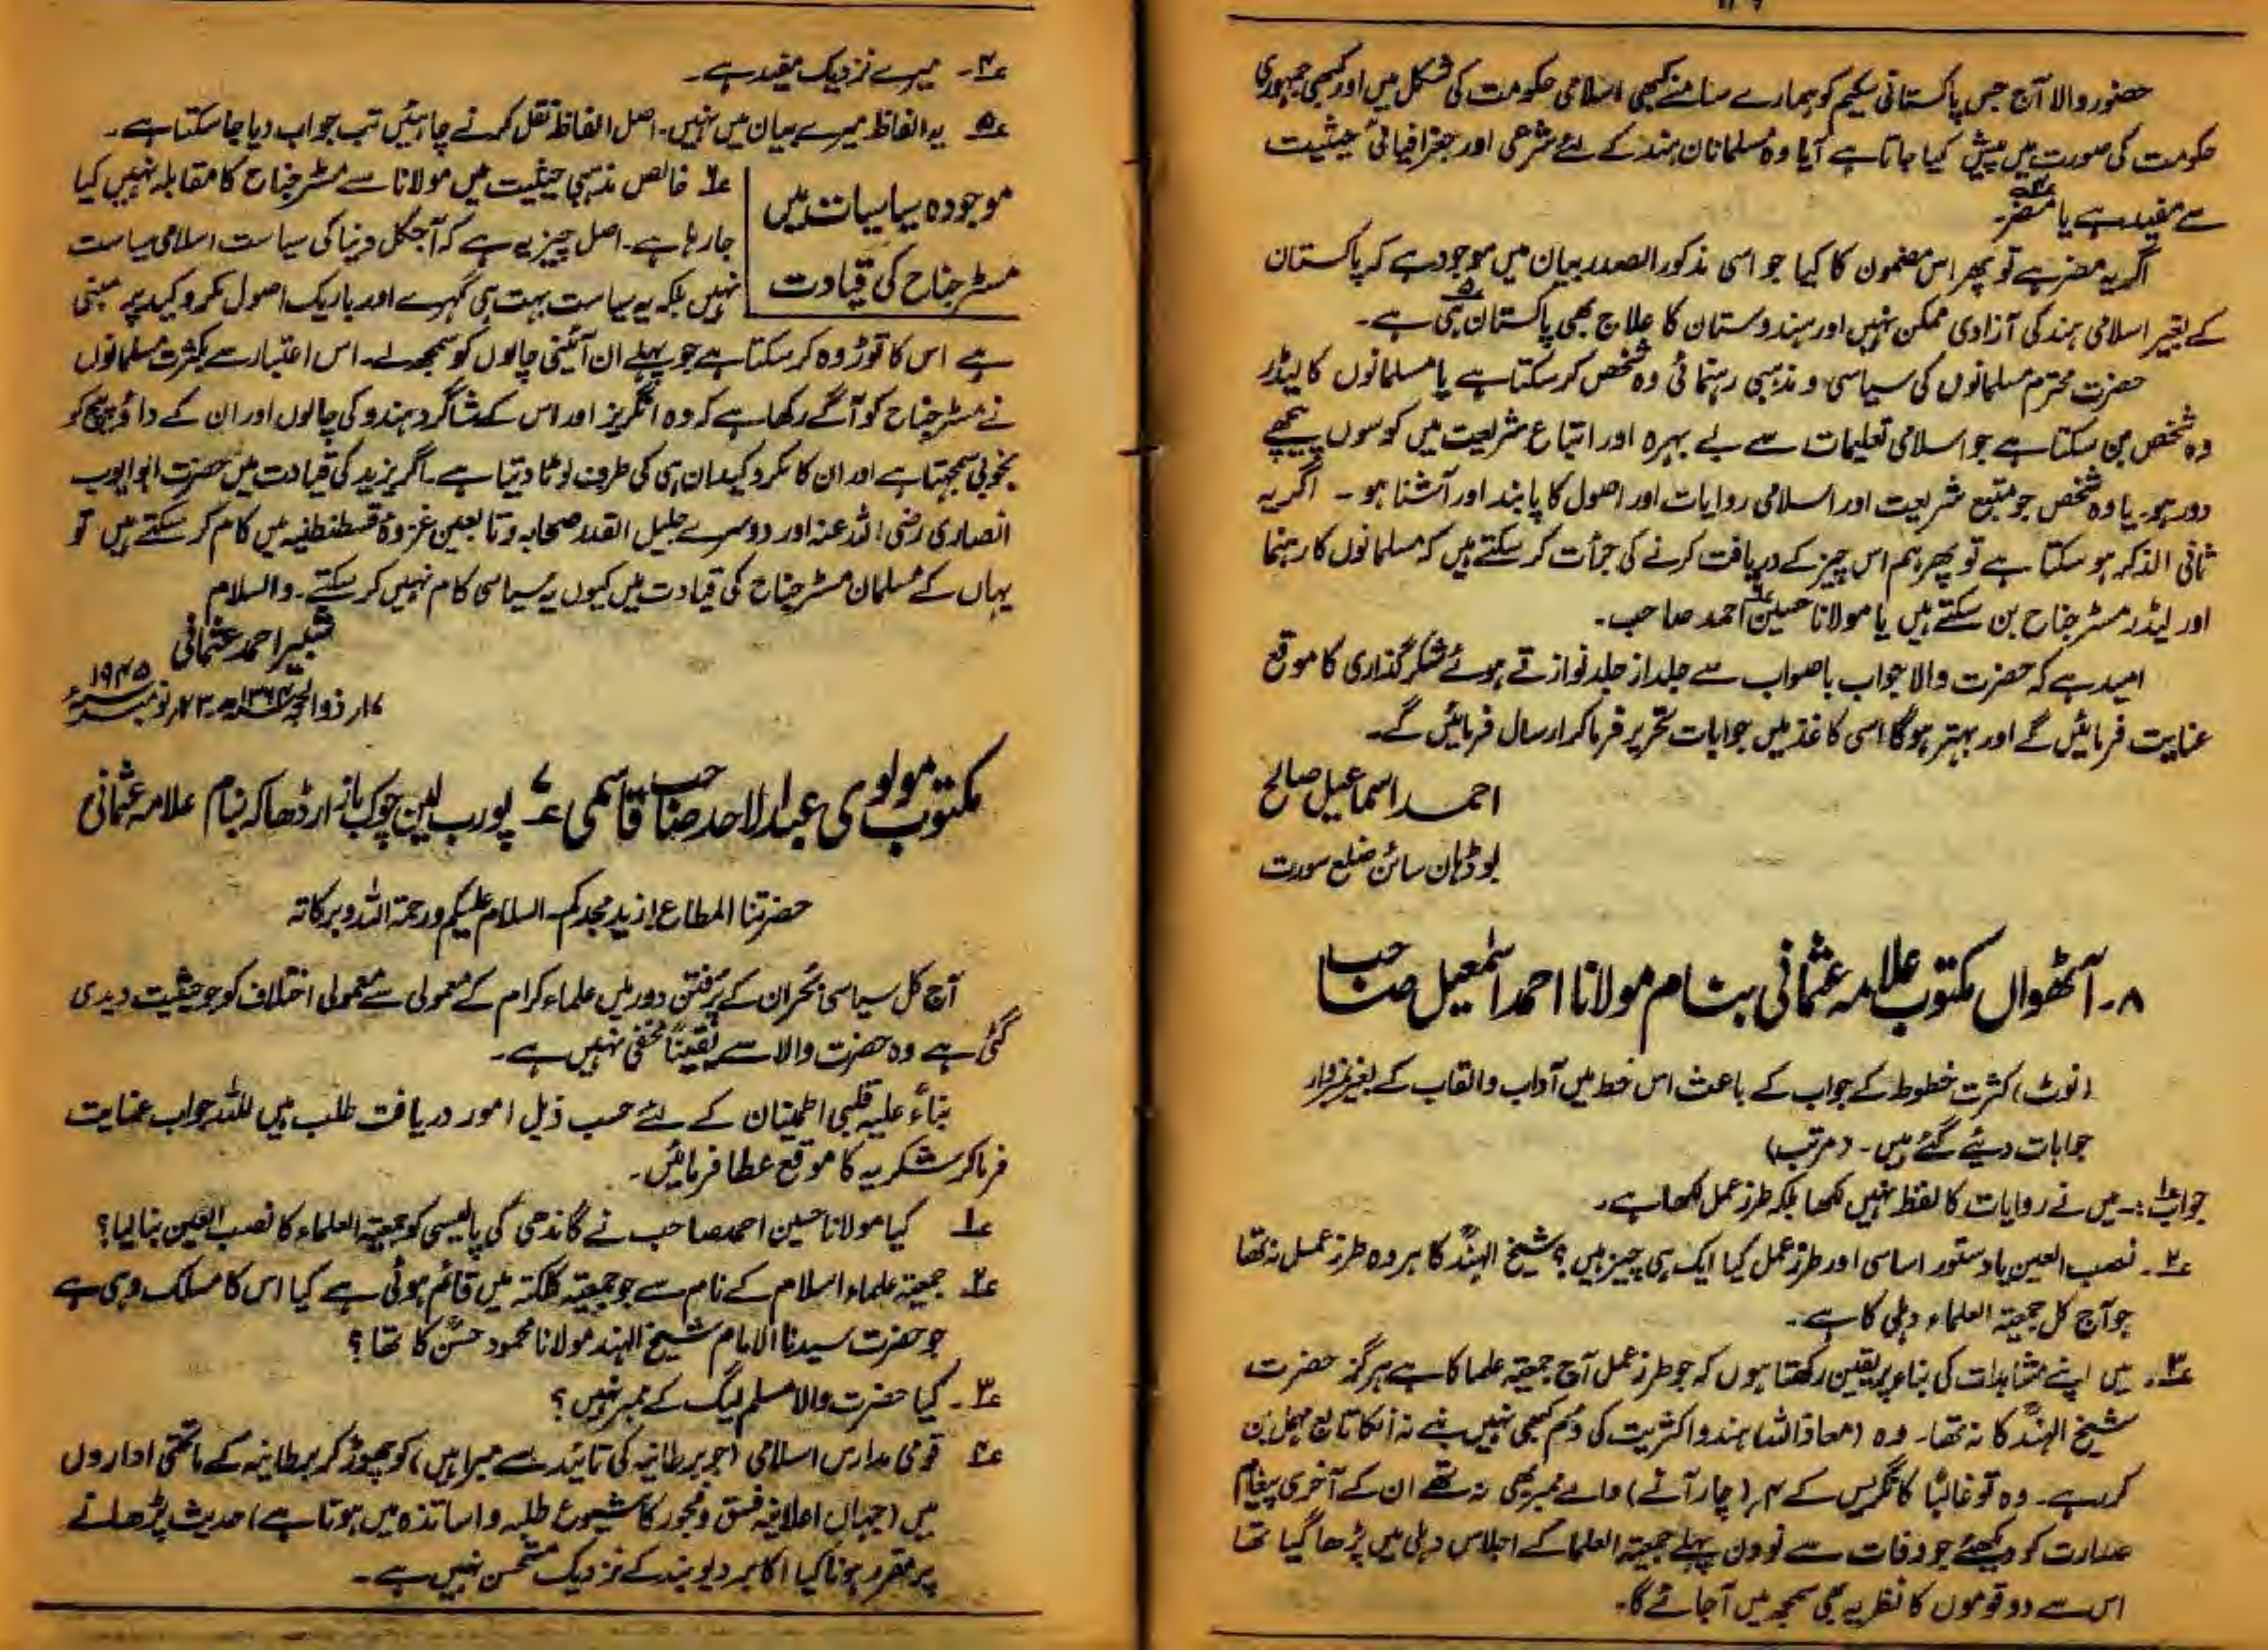 حضور والا آج جس پاکستانی سکیم کو ہمارے سامنے کبھی اسلامی حکومت کی شکل میں اور کبھی جمہوری
حکومت کی صورت میں پیش کیا جاتا ہے آیا وہ مسلمانان ہند کے لئے شرعی اور جغرافیائی حیثیت
سے مفید ہے یا مضر۔
اگر یہ مضر ہے تو پھر اس مضمون کا کیا جو اسی مذکور الصدر بیان میں موجود ہے کہ پاکستان
کے بغیر اسلامی ہند کی آزادی ممکن نہیں اور ہندوستان کا علاج بھی پاکستان ہی ہے۔
حضرت محترم مسلمانوں کی سیاسی و مذہبی رہنمائی وہ شخص کر سکتا ہے یا مسلمانوں کا لیڈر
وہ شخص بن سکتا ہے جو اسلامی تعلیمات سے بے بہرہ اور اتباع شریعت میں کوسوں پیچھے
دور ہو۔ یا وہ شخص جو متبع شریعت اور اسلامی روایات اور اصول کا پابند اور آشنا ہو ۔ اگر یہ
ثانی الذکر ہو سکتا ہے تو پھر ہم اس چیز کے دریافت کرنے کی جرأت کر سکتے ہیں کہ مسلمانوں کا رہنما
اور لیڈر مسٹر جناح بن سکتے ہیں یا مولانا حسین احمد صاحب۔
امید ہے کہ حضرت والا جواب باصواب سے جلد از جلد نوازتے ہوئے شکر گذاری کا موقع
عنایت فرمائیں گے اور بہتر ہوگا اسی کاغذ میں جوابات تحریر فرما کر ارسال فرمائیں گے۔
احمد اسماعیل صالح
بوڈہان سائن ضلع سورت
۸۔ آٹھواں مکتوب علامہ عثمانی بنام مولانا احمد اسمٰعیل صاحب
(نوٹ) کثرت خطوط کے جواب کے باعث اس خط میں آداب و القاب کے بغیر نمبروار
جوابات دیئے گئے ہیں۔ (مرتب)
جواب ۱: ۔ میں نے روایات کا لفظ نہیں لکھا بلکہ طرز عمل لکھا ہے۔
۲۔ نصب العین یا دستور اساسی اور طرز عمل کیا ایک ہی چیز ہیں؟ شیخ الہندؒ کا ہر وہ طرز عمل نہ تھا
جو آج کل جمعیۃ العلماء دہلی کا ہے۔
۳۔ میں اپنے مشاہدات کی بناء پر یقین رکھتا ہوں کہ جو طرز عمل آج جمعیۃ علما کا ہے ہرگز حضرت
شیخ الہندؒ کا نہ تھا۔ وہ (معاذ اللہ) ہندو اکثریت کی دُم کبھی نہیں بنے نہ انکا تابع مہمل بن
کر رہے۔ وہ تو غالباً کانگریس کے ۴؍ (چار آنے) والے ممبر بھی نہ تھے ان کے آخری پیغام
صدارت کو دیکھئے جو وفات سے نو دن پہلے جمعیۃ العلما کے اجلاس دہلی میں پڑھا گیا تھا
اس سے دو قوموں کا نظریہ بھی سمجھ میں آجائے گا۔
۴۔ میرے نزدیک مفید ہے۔
۵۔ یہ الفاظ میرے بیان میں نہیں۔ اصل الفاظ نقل کرنے چاہئیں تب جواب دیا جاسکتا ہے۔
موجودہ سیاسیات میں
مسٹر جناح کی قیادت
۶۔ خالص مذہبی حیثیت میں مولانا سے مسٹر جناح کا مقابلہ نہیں کیا
جا رہا ہے۔ اصل چیز یہ ہے کہ آجکل دنیا کی سیاست اسلامی سیاست
نہیں بلکہ یہ سیاست بہت ہی گہرے اور باریک اصول مکر و کید پر مبنی
ہے اس کا توڑ وہ کر سکتا ہے جو پہلے ان آئینی چالوں کو سمجھ لے۔ اس اعتبار سے بکثرت مسلمانوں
نے مسٹر جناح کو آگے رکھا ہے کہ وہ انگریز اور اس کے شاگرد ہندو کی چالوں اور ان کے داؤ پیچ کو
بخوبی سمجہتا ہے اور ان کا مکر و کید ان ہی کی طرف لوٹا دیتا ہے۔ اگر یزید کی قیادت میں حضرت ابو ایوب
انصاری رضی اللہ عنہ اور دوسرے جلیل القدر صحابہ و تابعین غزوۂ قسطنطنیہ میں کام کر سکتے ہیں تو
یہاں کے مسلمان مسٹر جناح کی قیادت میں کیوں یہ سیاسی کام نہیں کر سکتے۔ والسلام
شبیر احمد عثمانی
۱۷؍ ذوالحجہ ۱۳۶۴ھ ۲۳؍ نومبر ۱۹۴۵ء
مکتوب مولوی عبدالاحد صاحب قاسمی ۷ پورب لین چوک بازار ڈھاکہ بنام علامہ عثمانی
حضرتنا المطاع ازید مجدکم۔ السلام علیکم ورحمۃ اللہ وبرکاتہ
آج کل سیاسی بحران کے پرفتن دور میں علماء کرام کے معمولی سے معمولی اختلاف کو جو حیثیت دیدی
گئی ہے وہ حضرت والا سے یقیناً مخفی نہیں ہے۔
بناءً علیہ قلبی اطمینان کے لئے حسب ذیل امور دریافت طلب ہیں للہ جواب عنایت
فرماکر شکریہ کا موقع عطا فرمائیں۔
۱ کیا مولانا حسین احمد صاحب نے گاندھی کی پالیسی کو جمعیۃ العلماء کا نصب العین بنالیا؟
۲۔ جمعیۃ علماء اسلام کے نام سے جو جمعیۃ کلکتہ میں قائم ہوئی ہے کیا اس کا مسلک وہی ہے
جو حضرت سیدنا الامام شیخ الہند مولانا محمود حسنؒ کا تھا؟
۳۔ کیا حضرت والا مسلم لیگ کے ممبر نہیں؟
۴ قومی مدارس اسلامی (جو برطانیہ کی تائید سے مبرا ہیں) کو چھوڑ کر برطانیہ کے ماتحتی اداروں
میں (جہاں اعلانیہ فسق و فجور کا شیوع طلبہ و اساتذہ میں ہوتا ہے) حدیث پڑھانے
پر مقرر ہونا کیا اکابر دیوبند کے نزدیک مستحسن نہیں ہے۔